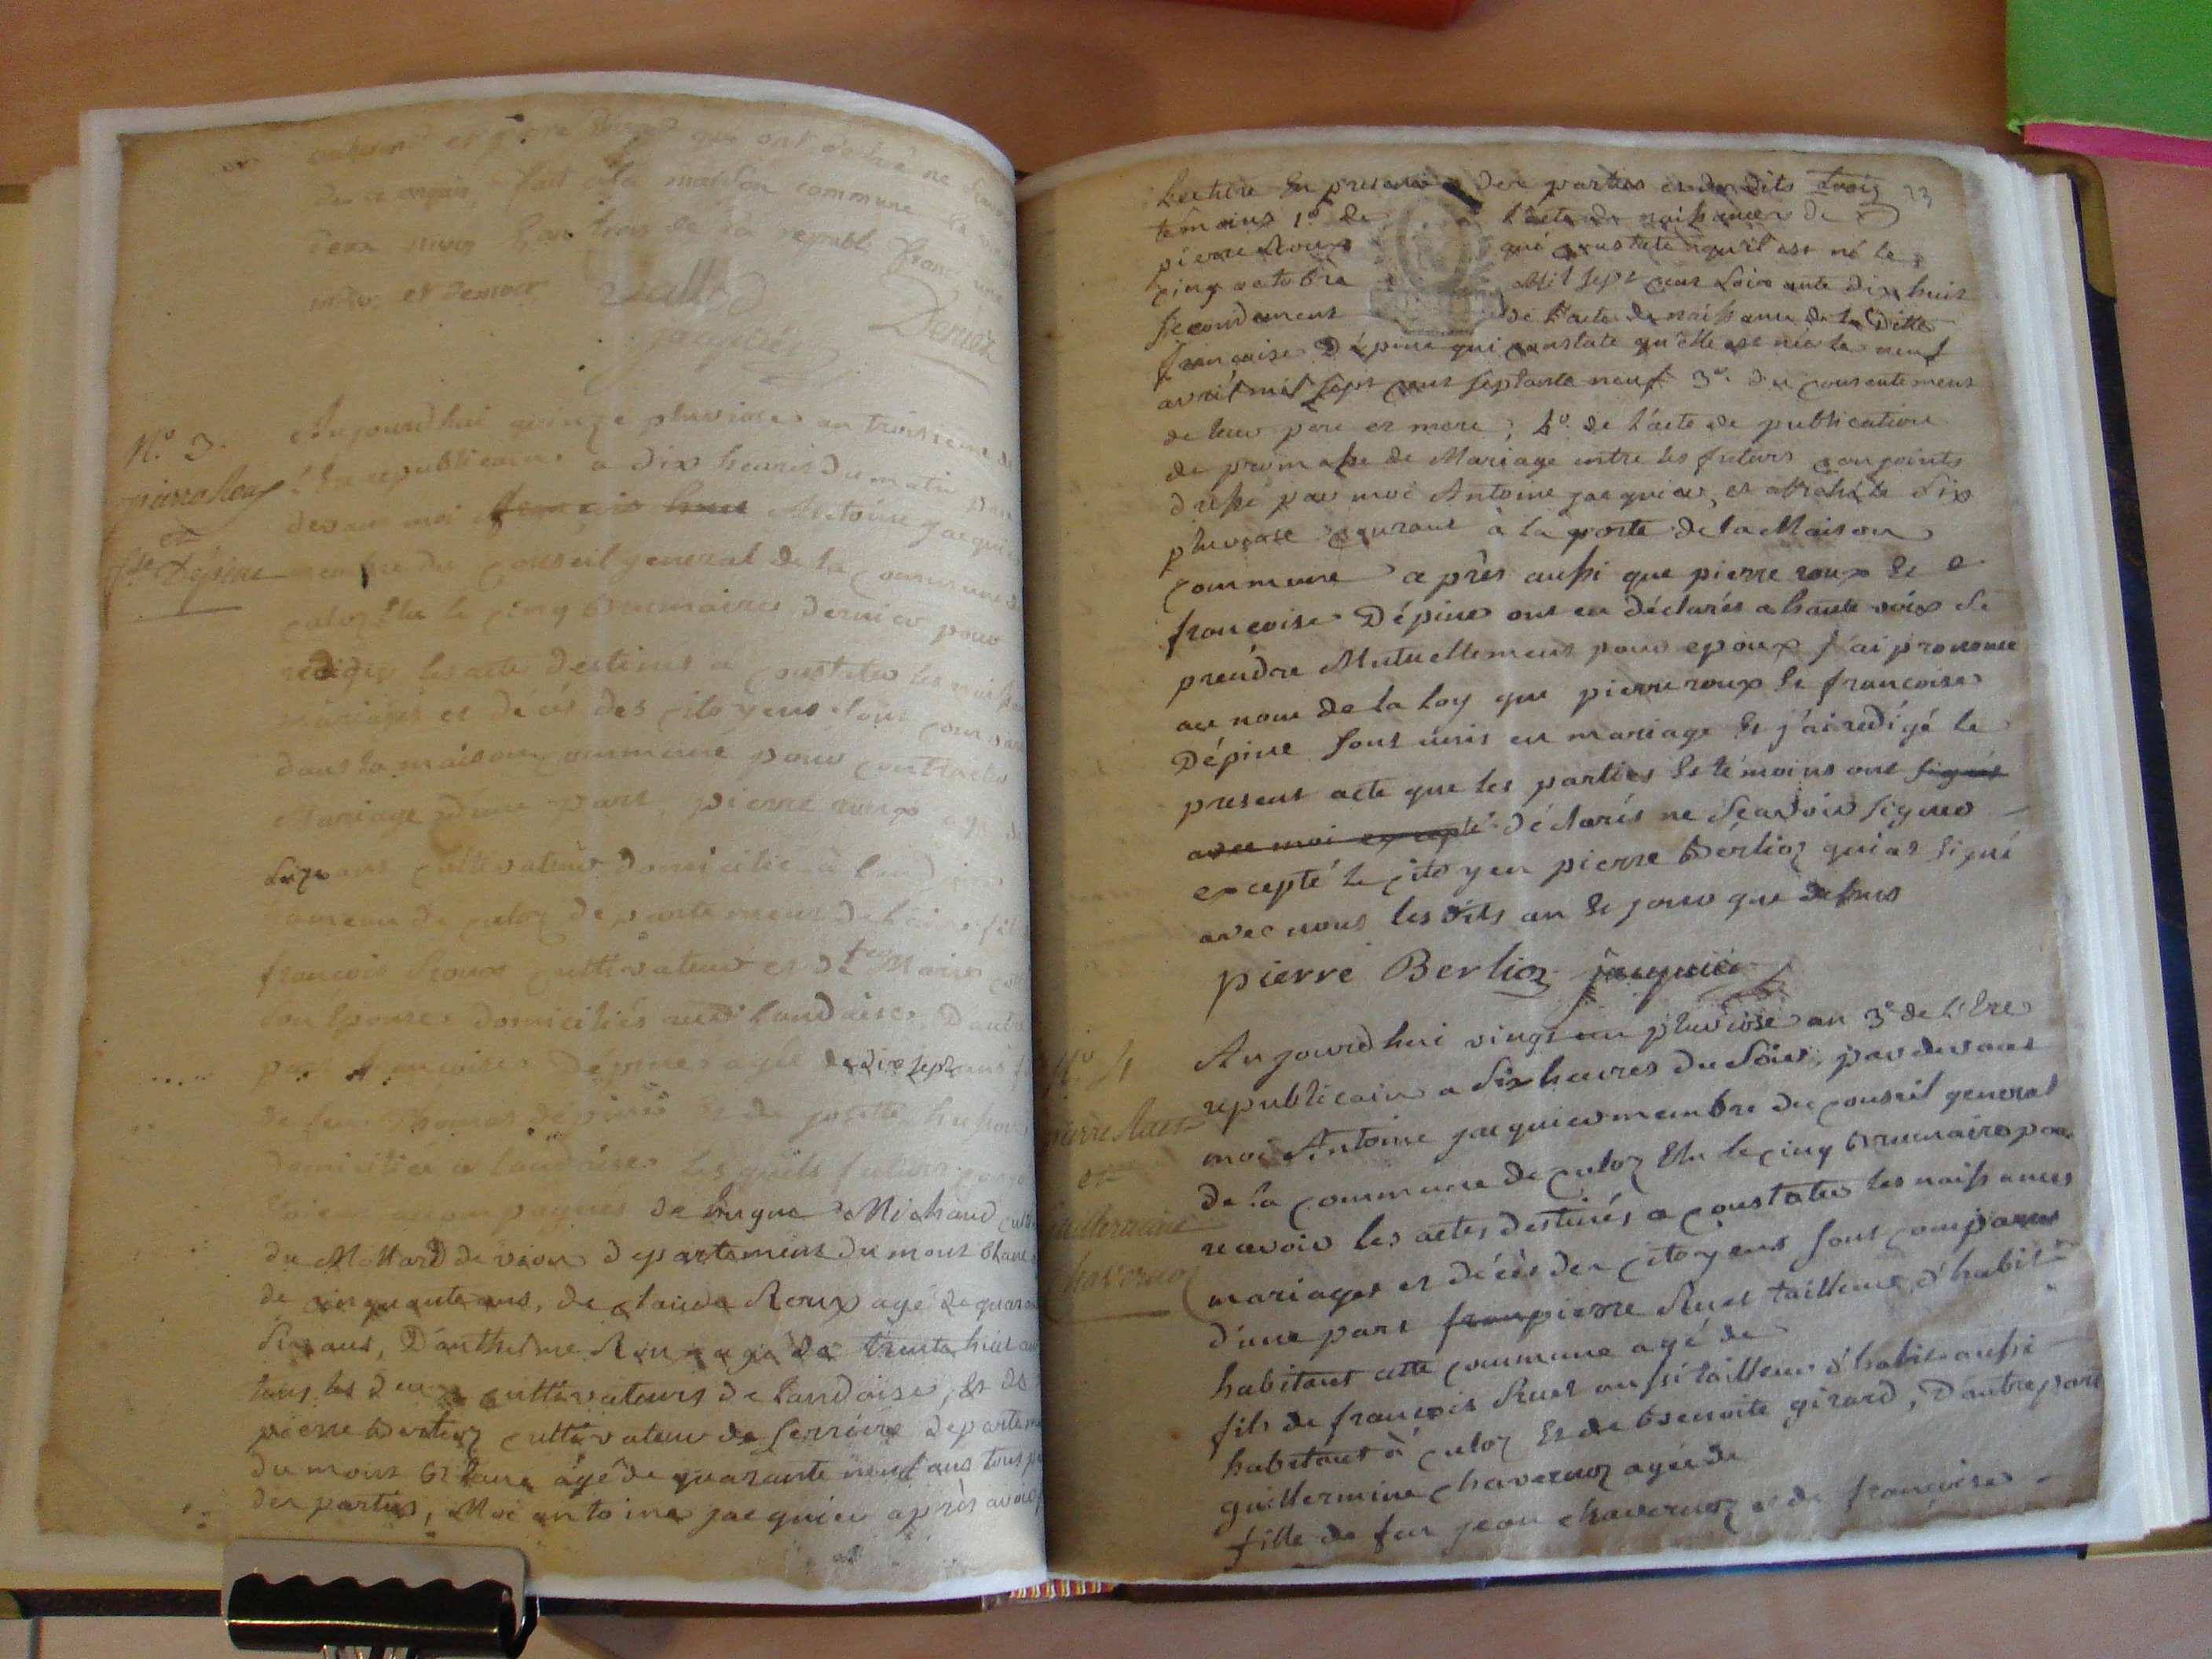 de ce requis fait a la maison commune
deux nivose l'an trois de la republ. franc. une
indiv. et democr.
jacquier
Dernoz
N.º 3.
pierre Roux
et
f.se Dépine
Aujourdhui quinze pluviose an troisieme de
l'Ere republicaine a dix heures du matin par
devant moi Antoine jacquier
membre du conseil general de la commune de
culoz Elu le cinq brumaire dernier pour
rediger les acte destinés a constater les naiss
mariages et decés des citoyens sont comparu
dans la maison commune pour contracter
Mariage d'une part, pierre roux agé de
ans cultivateur domicilié à landaise
hameau de culoz departement de l'ain fil
francois Roux cultivateur et de Marie
son Epouse domiciliés audit landaise, D'autre
part francoise Dépine agée de dix sept ans
de feu Thomas dépine et de josette
domiciliée a landaise les quels futurs
étoient accompagnés de hugue Michaud
du Mollard de vion departement du mont blanc
de cinquante ans, de claude Roux agé de quaran
six ans, D'anthelme Roux agé de trente huit an
tous les deux cultivateurs de landaise, Et de
pierre Berlioz cultivateur de serriere departeme
du mont Blanc agé de quarante neuf ans tous
des parties, Moi antoine jacquier après avoir
23
lecture En presence des parties et des dits
temoins 1º de l'acte de naissance de
pierre Roux qui constate qu'il est né le
cinq octobre Mil sept cent soixante dix huit
secondement de l'acte de naissance de la ditte
francoise Dépine qui constate qu'elle est née le neuf
avril mil sept cent septante neuf 3º. du consentement
de leur pere et mere, 4º. de l'acte de publication
de promesse de Mariage entre les futurs conjoints
dressé par moi Antoine jacquier, et affiché le dix
pluviose courant à la porte de la Maison
commune après aussi que pierre roux Et
francoise Dépine ont eu déclarés a haute voix se
prendre Mutuellement pour epoux j'ai prononcé
au nom de la loy que pierre roux Et francoise
Dépine sont unis en mariage Et j'ai redigé le
present acte que les parties Et témoins ont signés
avec moi excepté déclarés ne sçavoir signer
excepté le citoyen pierre Berlioz qui at signé
avec nous les dits an Et jour que dessus
pierre Berlioz jacquier
Nº 4
pierre Ruet
et
guillermine
chavernoz
Aujourdhui vingt un pluviose an 3e de l'Ere
republicain a six heures du soir, par devant
moi Antoine jacquier membre du conseil general
de la commune de culoz Elu le cinq brumaire pour
recevoir les actes destinés a constater les naissances
mariages et décès des citoyens sont comparus
d'une part fran pierre Ruet tailleur d'habit
habitant cette commune agé de
fils de francois Ruet aussi tailleur d'habit aussi
habitant à culoz Et de benoite girard, D'autre part
guillermine chavernoz agée de
fille de feu jean chavernoz et de francoise